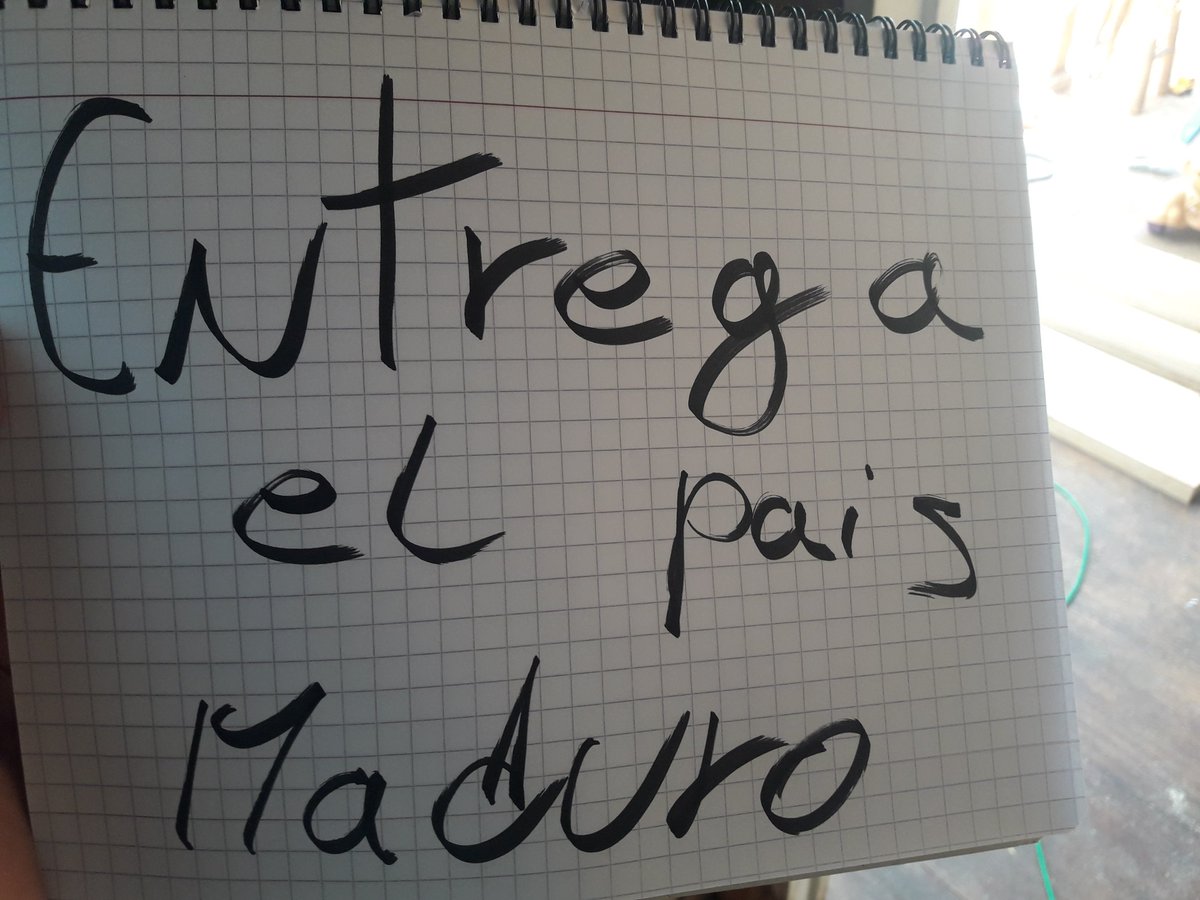 Entrega
el pais
Maduro